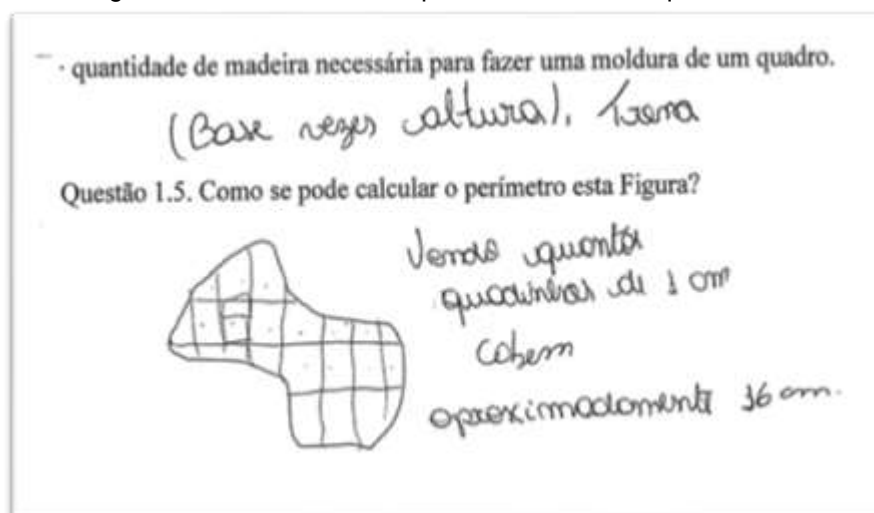 · quantidade de madeira necessária para fazer uma moldura de um quadro.
(Base vezes altura), Trena
Questão 1.5. Como se pode calcular o perimetro esta Figura?
Vendo quantos
quadrinhos de 1 cm
cabem
aproximadamente 16 cm.